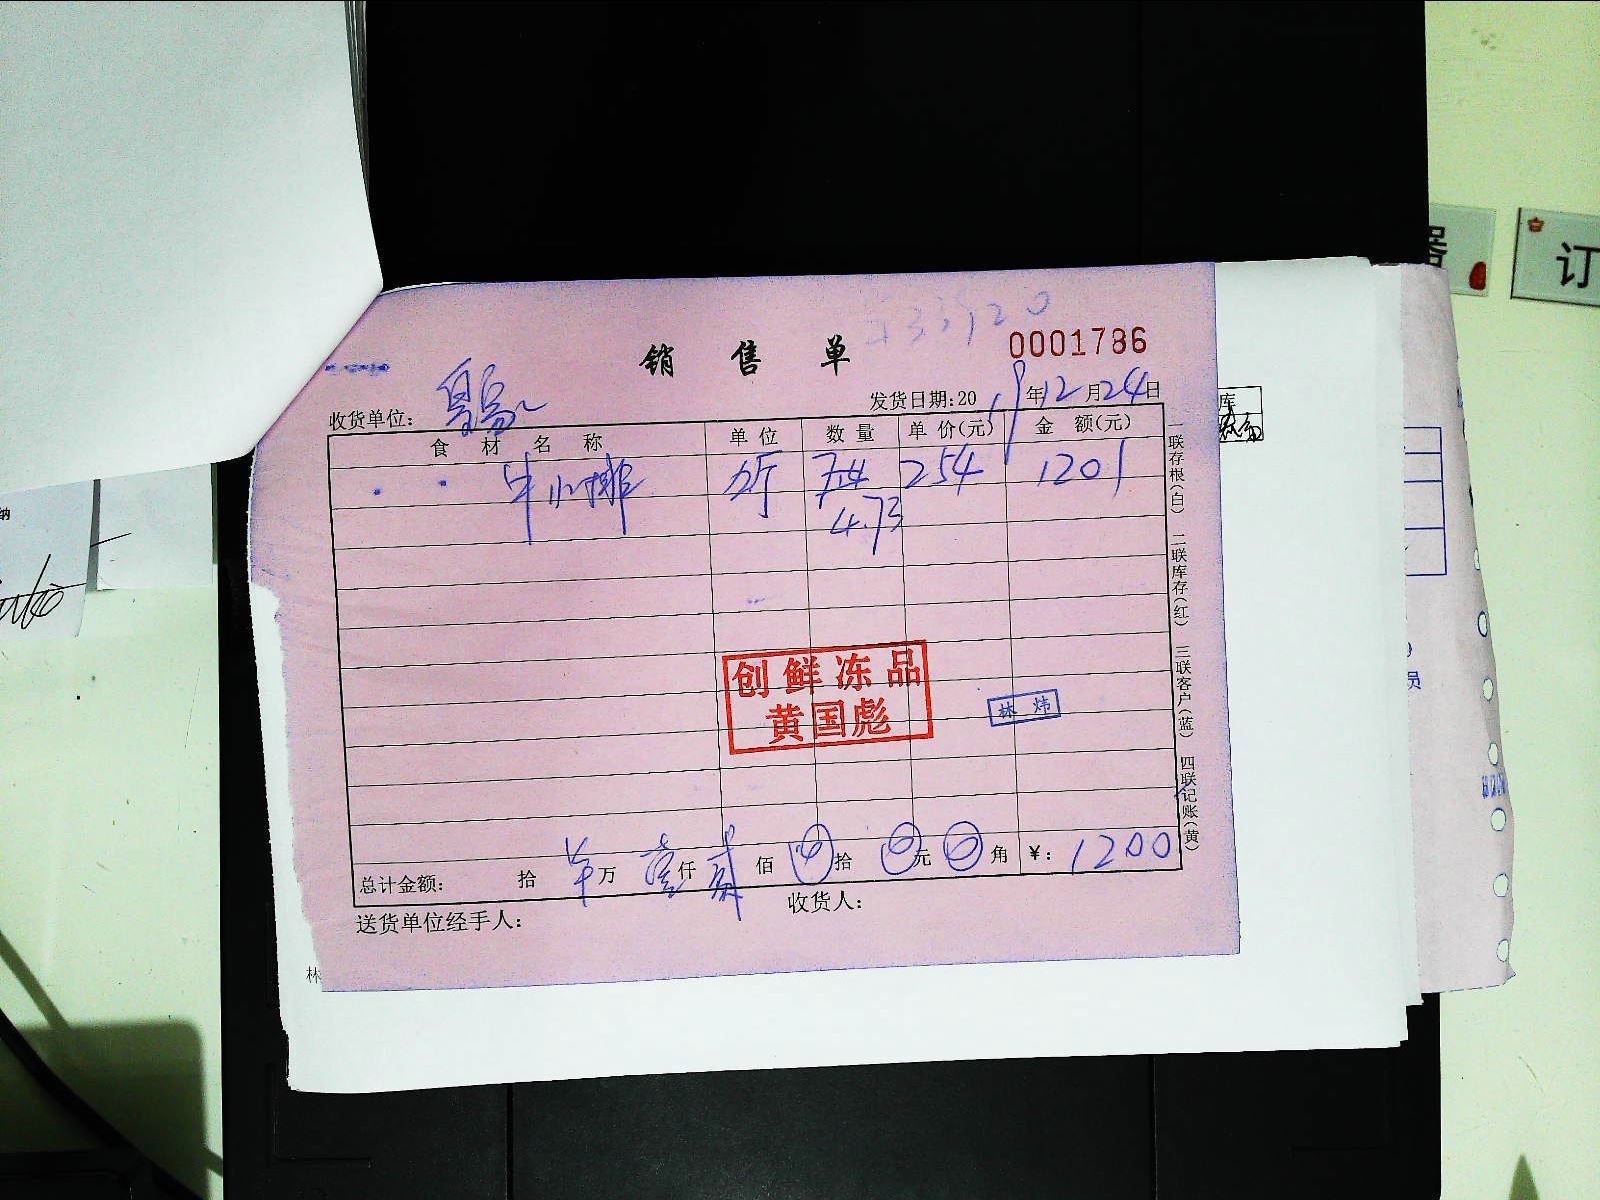 销售单
0001786
收货单位:
发货日期:2019年12月24日
食材名称 单位 数量 单价(元) 金额(元)
牛小排 斤 254 1201
4.73
创鲜冻品
黄国彪
林炜
总计金额: 拾 万 壹仟 贰佰 拾 元 角 ¥: 1200
送货单位经手人: 收货人:
一联存根(白) 二联库存(红) 三联客户(蓝) 四联记账(黄)
订
库
员
纳
林